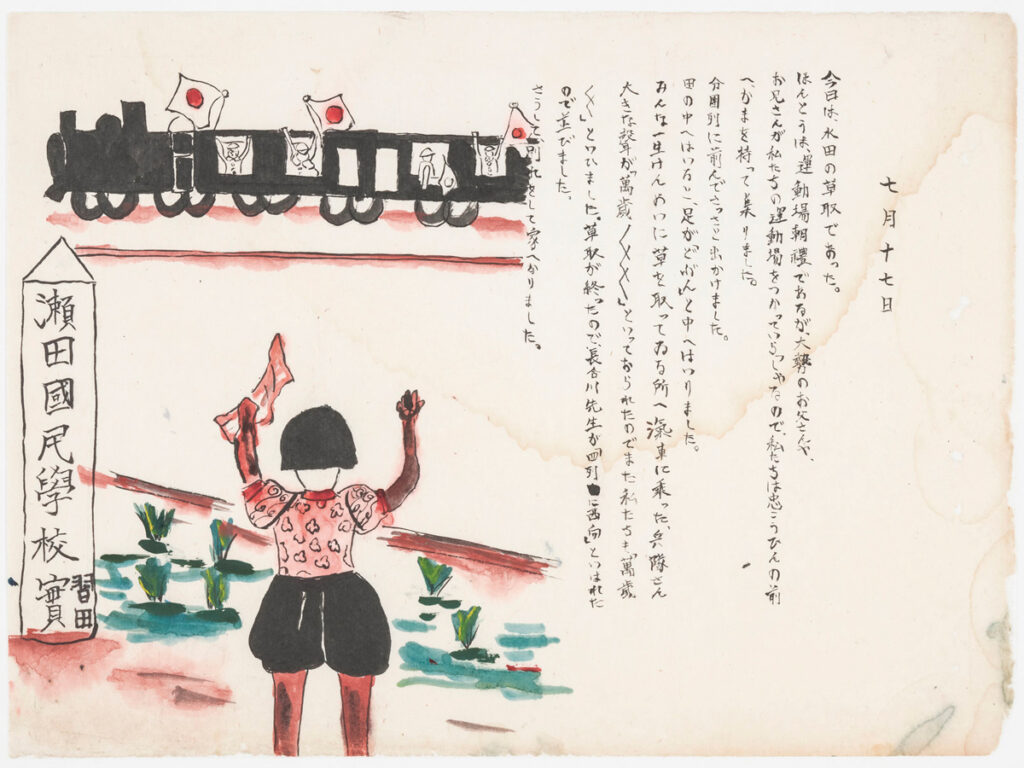 七月十七日
今日は、水田の草取であった。
ほんとうは、運動場朝禮であるが、大勢のお父さんや、
お兄さんが私たちの運動場をつかっていらっしゃるので、私たちは忠こうひんの前
へかまを持って集りました。
分団別に前んでさっさと出かけました。
田の中へはいると、足が、どぶんと中へはいりました。
みんな一生けんめいに草を取ってゐる所へ滊車に乗った、兵隊さん
大きな聲が"萬歳〳〵〳〵"といっておられたのでまた私たちも"萬歳
〳〵"といひました。草取が終ったので、長谷川先生が四列に西向"といはれた
ので並びました。
さうして別れをして家へかりました。
瀬田國民學校實習田